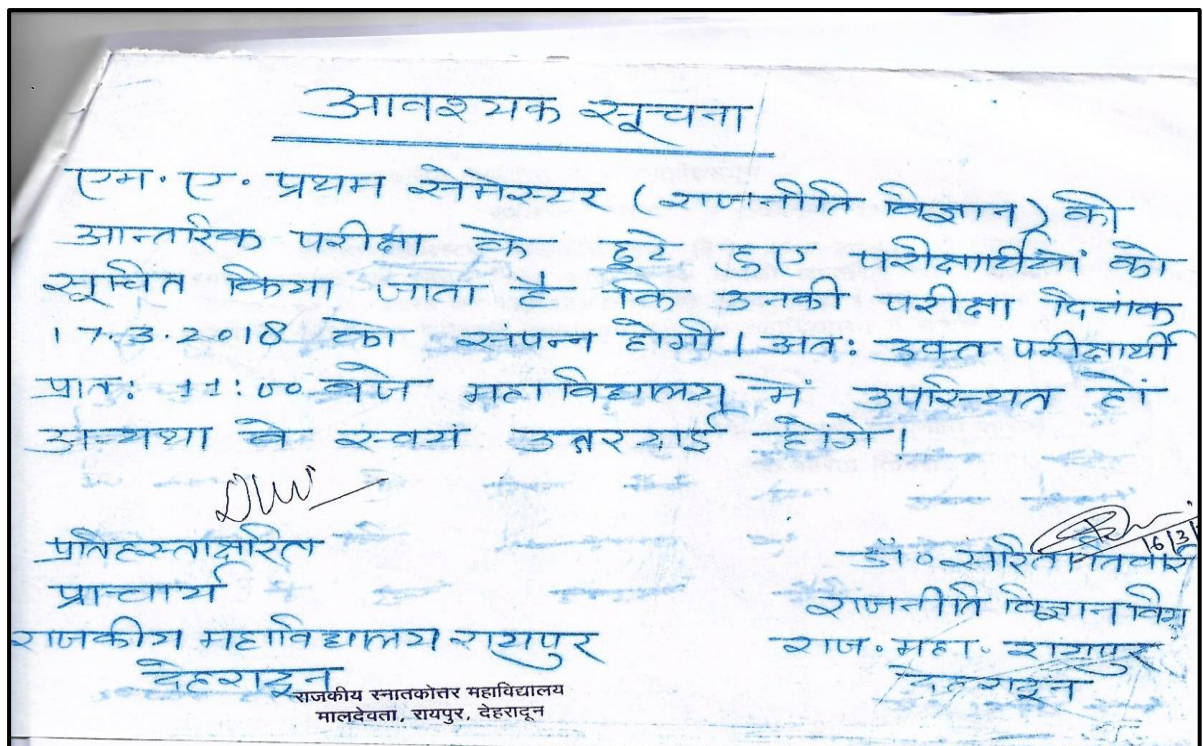 आवश्यक सूचना
एम. ए. प्रथम सेमेस्टर (राजनीति विज्ञान) की
आन्तरिक परीक्षा के छूटे हुए परीक्षार्थीयों को
सूचित किया जाता है कि उनकी परीक्षा दिनांक
17.3.2018 को सपन्न होगी। अतः उक्त परीक्षार्थी
प्रातः 11:00 बजे महाविद्यालय में उपस्थित हों
अन्यथा वे स्वयं उत्तरदाई होंगे।
प्रतिहस्ताक्षरित
प्राचार्य
राजकीय महाविद्यालय रायपुर
देहरादून
राजकीय स्नातकोत्तर महाविद्यालय
मालदेवता, रायपुर, देहरादून
16/3/
डॉ० सरिता तिवारी
राजनीति विज्ञान विभा
राज. महा. रायपुर
देहरादून